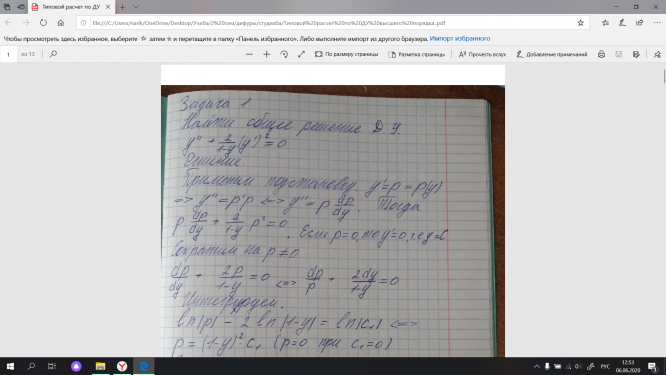 Типовой расчет по ДУ
file:///C:/Users/narik/OneDrive/Desktop/Учеба/2%20сем/дифуры/студизба/Типовой%20расчет%20по%20ДУ%20высшего%20порядка.pdf
Чтобы просмотреть здесь избранное, выберите ☆ затем ☆ и перетащите в папку «Панель избранного». Либо выполните импорт из другого браузера. Импорт избранного
1 из 13 По размеру страницы Разметка страницы Прочесть вслух Добавление примечаний
Задача 1
Найти общее решение Д У.
y'' + 2/(1-y) (y')² = 0
Решение.
Применим подстановку y' = p = p(y)
=> y'' = p'p <=> y'' = p dp/dy. Тогда
p dp/dy + 2/(1-y) p² = 0. Если p=0, то y'=0, т.е y=C
Сократим на p ≠ 0
dp/dy + 2p/(1-y) = 0 <=> dp/p + 2dy/(1-y) = 0
Интегрируем.
ln|p| - 2 ln|1-y| = ln|C₁| <=>
p = (1-y)² C₁ (p=0 при C₁=0)
РУС
12:53
06.06.2020